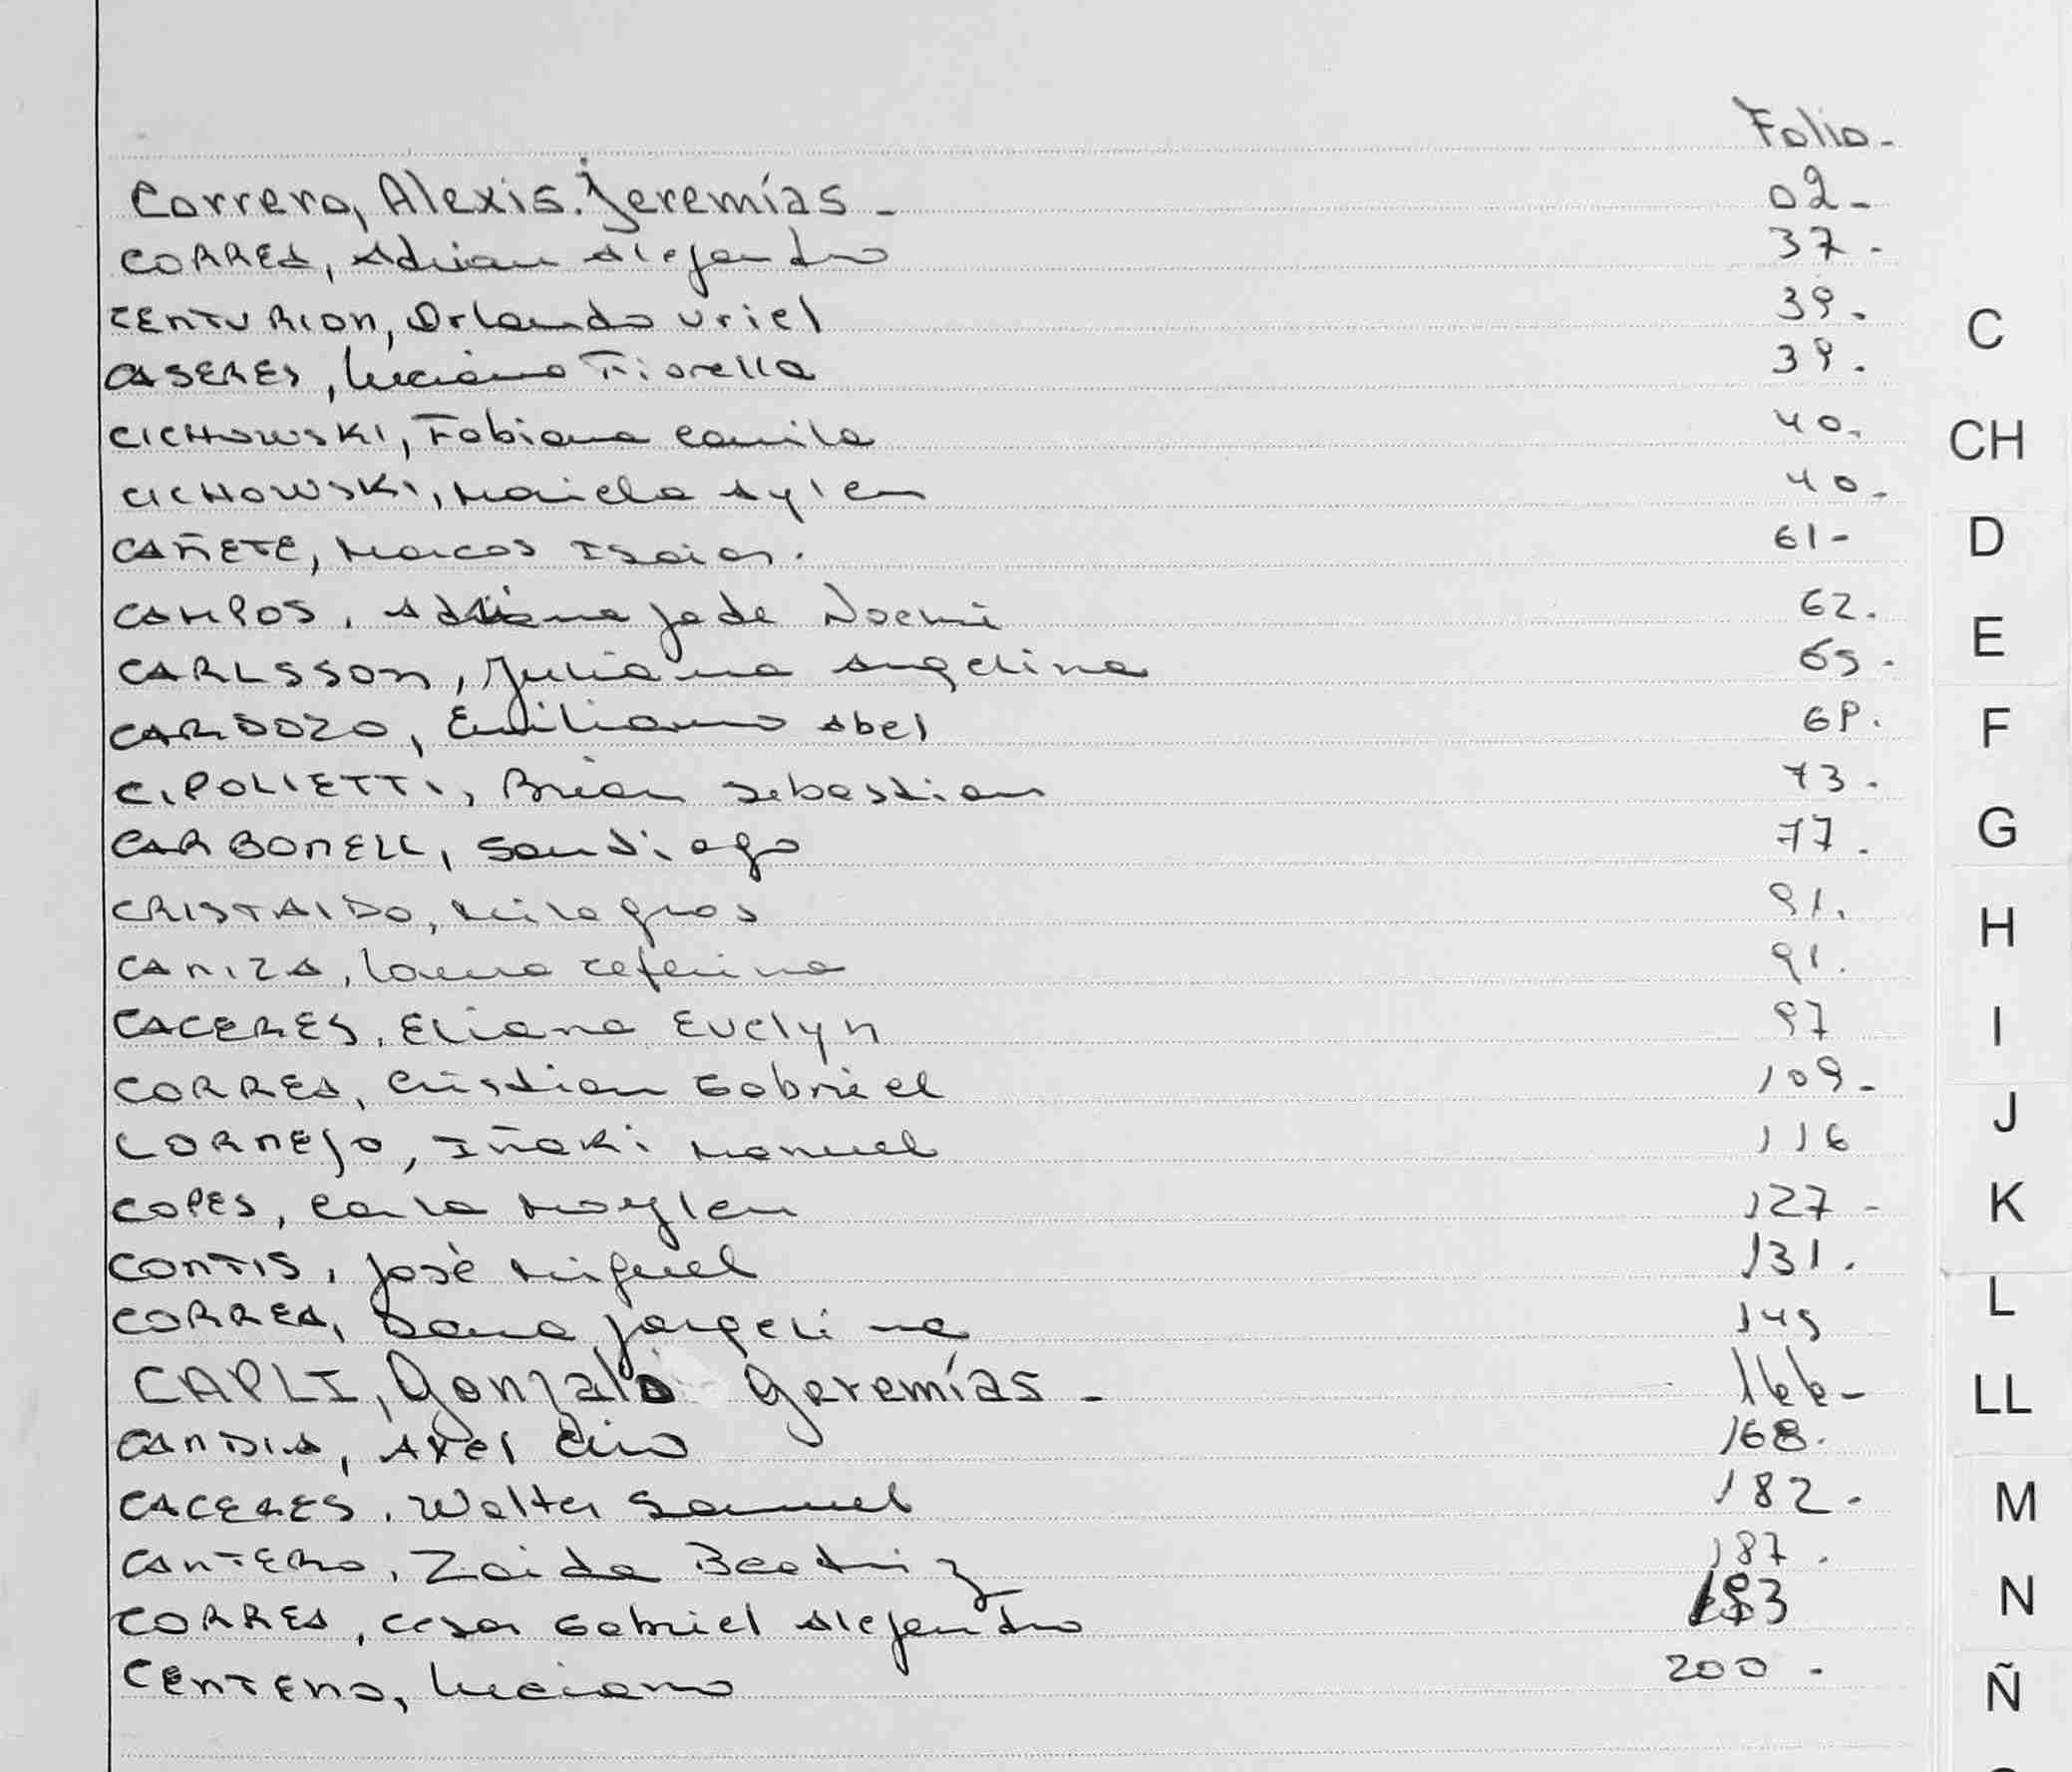 Folio-
Correro, Alexis Jeremías - 02-
CORREA, Adrian Alejandro 37.
CENTURION, Orlando Uriel 39.
CASERES, Luciana Fiorella 39.
CICHOWSKI, Fabiana Camila 40.
CICHOWSKI, Mariela Aylen 40.
CAÑETE, Marcos Isaias. 61-
CAMPOS, Adriana Jade Noemi 62.
CARLSSON, Juliana Angelina 65.
CARDOZO, Emiliano Abel
CIPOLIETTI, Brian Sebastian 73.
CARBONELL, Santiago 77.
CRISTALDO, Milagros 91.
CANIZA, Laura Ceferina 91.
CACERES, Eliana Evelyn 97
CORREA, Cristian Gabriel 109-
CORNEJO, Iñaki Manuel 116
COPES, Carla Maylen 127-
CONTIS, José Miguel 131.
CORREA, Dana Jorgelina 145
CAPLI, Gonzalo Geremías - 166-
CANDIA, Axel Ciro 168.
CACERES, Walter Samuel 182.
CANTERO, Zaida Beatriz 187.
CORREA, Cesar Gabriel Alejandro
CENTENO, Luciano 200.
C
CH
D
E
F
G
H
I
J
K
L
LL
M
N
Ñ